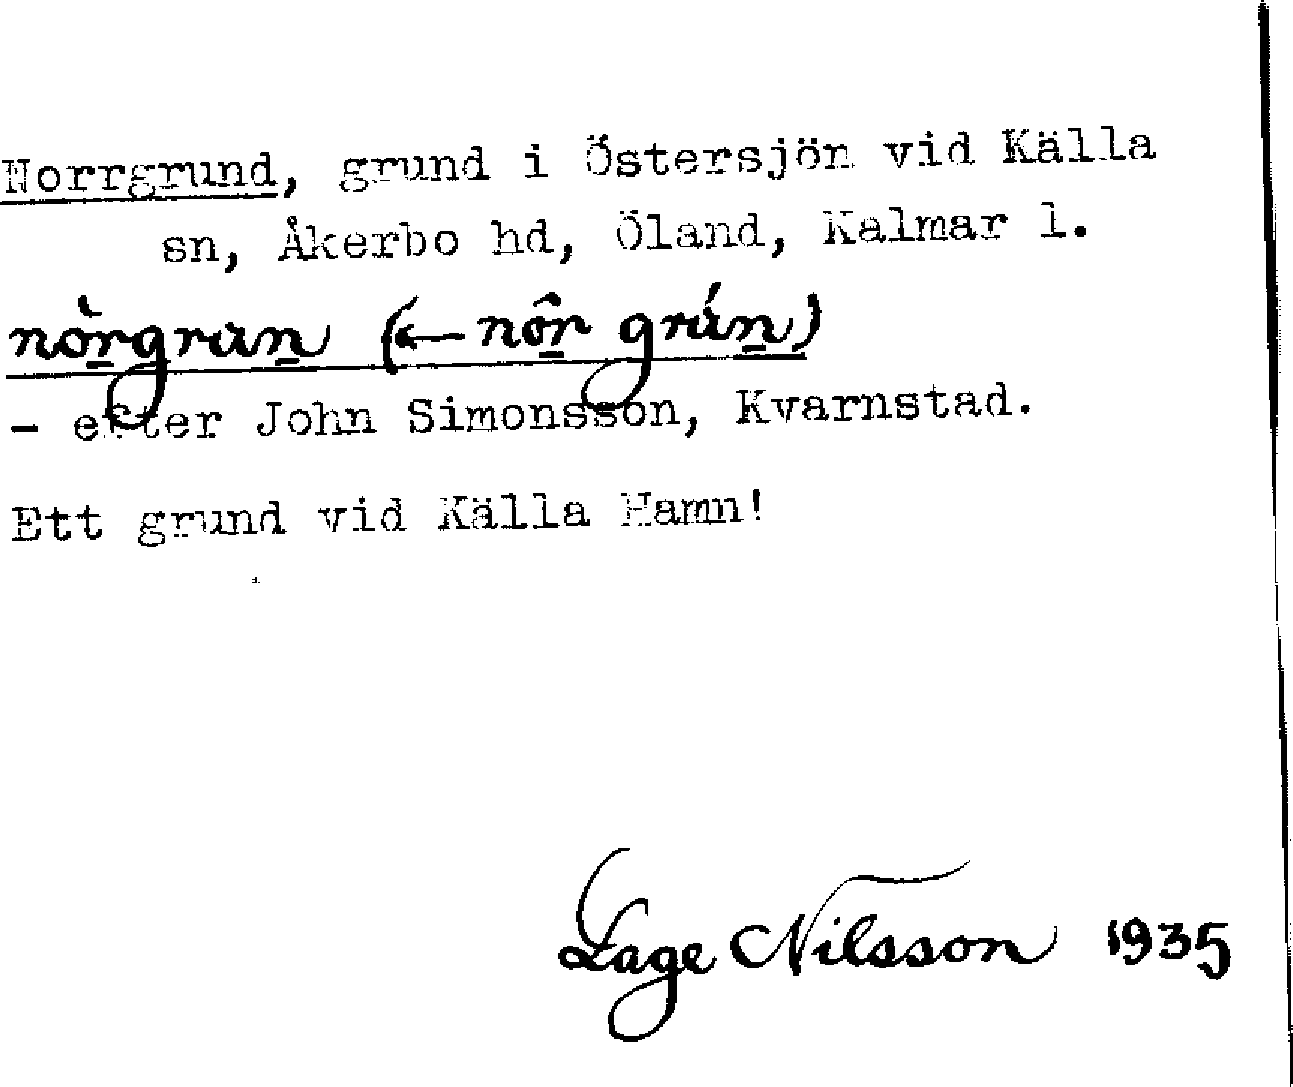 Norrgrund, grund i Östersjön vid Källa
sn, Åkerbo hd, Öland, Kalmar l.
nòrgrun (← nôr grún)
- efter John Simonsson, Kvarnstad.
Ett grund vid Källa Hamn!
Lage Nilsson 1935